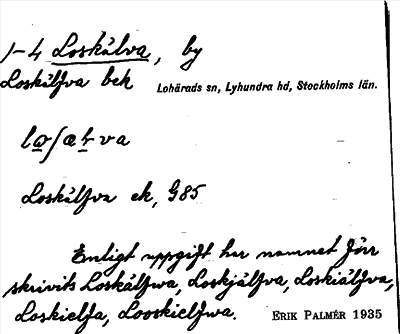 1-4 Loskälva, by
Loskälfva bek
Lohärads sn, Lyhundra hd, Stockholms län.
Loskälfva ek, G85
Enligt uppgift har namnet förr
skrivits Loskälfwa, Loskjälfva, Loskiälfva,
Loskielfa, Looskielfwa.
ERIK PALMÉR 1935